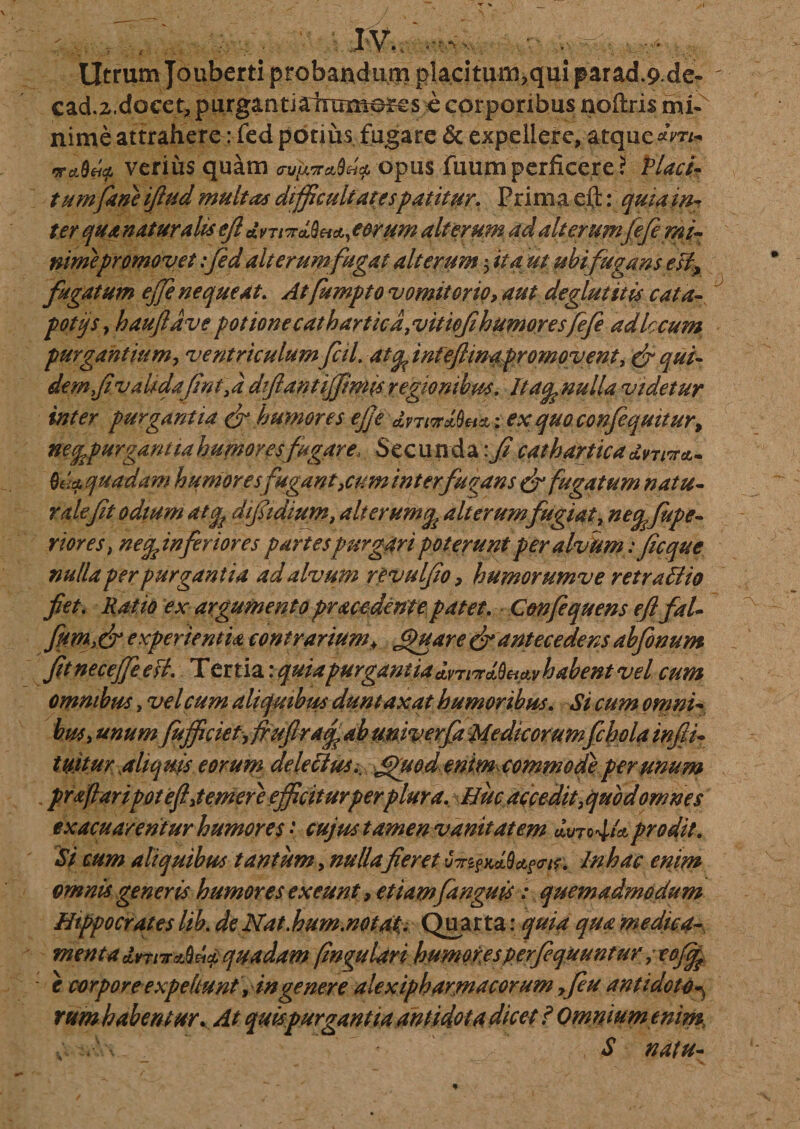 IV.
Utrum Jouberti probandum placitum, qui parad.9.de-
cad.2.docet, purgantia humores è corporibus noſtris mi-
nimè attrahere: ſed potiùs fugare & expellere, atque ἀντι-
παθείᾳ veriùs quàm συμπαθείᾳ opus ſuum perficere? Placi-
tum ſanè iſtud multas difficultates patitur. Prima eſt: quia in-
ter quæ naturalis eſt ἀντιπάθεια, eorum alterum ad alterum ſeſe mi-
nimè promovet: ſed alterum fugat alterum; ita ut ubi fugans eſt,
fugatum eſſe nequeat. At ſumpto vomitorio, aut deglutitis cata-
potijs, hauſtâve potione catharticâ, vitioſi humores ſeſe ad locum
purgantium, ventriculum ſcil. atq; inteſtina promovent, & qui-
dem, ſi valida ſint, à diſtantiſſimis regionibus. Itaq; nulla videtur
inter purgantia & humores eſſe ἀντιπάθεια: ex quo conſequitur,
neq; purgantia humores fugare. Secunda: ſi cathartica ἀντιπα-
θείᾳ quadam humores fugant, cum inter fugans & fugatum natu-
rale ſit odium atq; diſsidium, alterumq; alterum fugiat, neq; ſupe-
riores, neq; inferiores partes purgari poterunt per alvum: ſicque
nulla per purgantia ad alvum revulſio, humorumve retractio
fiet. Ratio ex argumento præcedente patet. Conſequens eſt fal-
ſum, & experientiæ contrarium. Quare & antecedens abſonum
ſit neceſſe eſt. Tertia: quia purgantia ἀντιπάθειαν habent vel cum
omnibus, vel cum aliquibus duntaxat humoribus. Si cum omni-
bus, unum ſufficiet, fruſtraq; ab univerſa Medicorum ſchola inſti-
tuitur aliquis eorum delectus. Quod enim commodè per unum
præſtari poteſt, temerè efficitur per plura. Huc accedit, quòd omnes
exacuarentur humores: cujus tamen vanitatem αὐτοψία prodit.
Si cum aliquibus tantùm, nulla fieret ὑπερκάθαρσις. In hac enim
omnis generis humores exeunt, etiam ſanguis: quemadmodum
Hippocrates lib. de Nat. hum. notat. Quarta: quia quæ medica-
menta ἀντιπαθείᾳ quadam ſingulari humores perſequuntur, eoſq;
è corpore expellunt, in genere alexipharmacorum, ſeu antidoto-
rum habentur. At quis purgantia antidota dicet? Omnium enim
S natu-